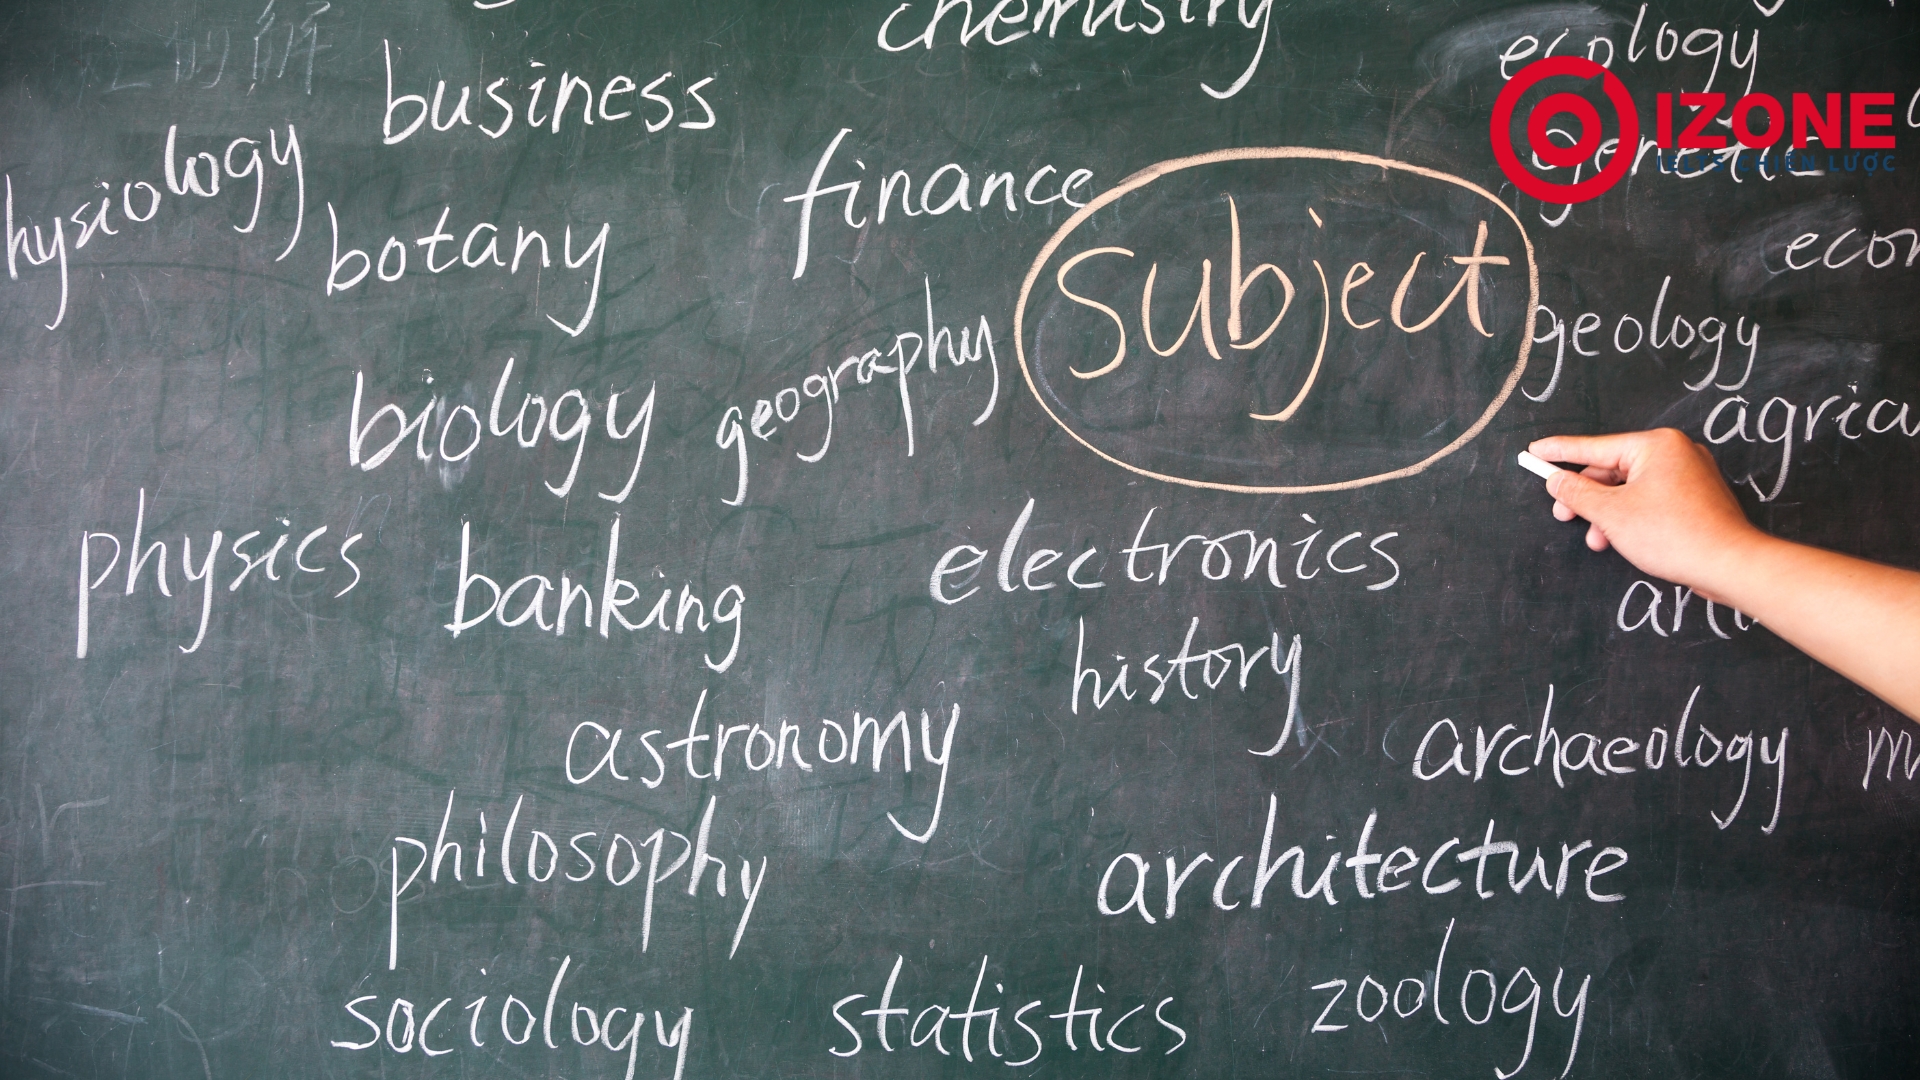 chemistry
ecology
business
IZONE
IELTS CHIẾN LƯỢC
genetic
hysiology
finance
botany
subject
econ
geography
geology
biology
agricu
physics
banking
electronics
history
astronomy
archaeology
philosophy
architecture
sociology
statistics
zoology